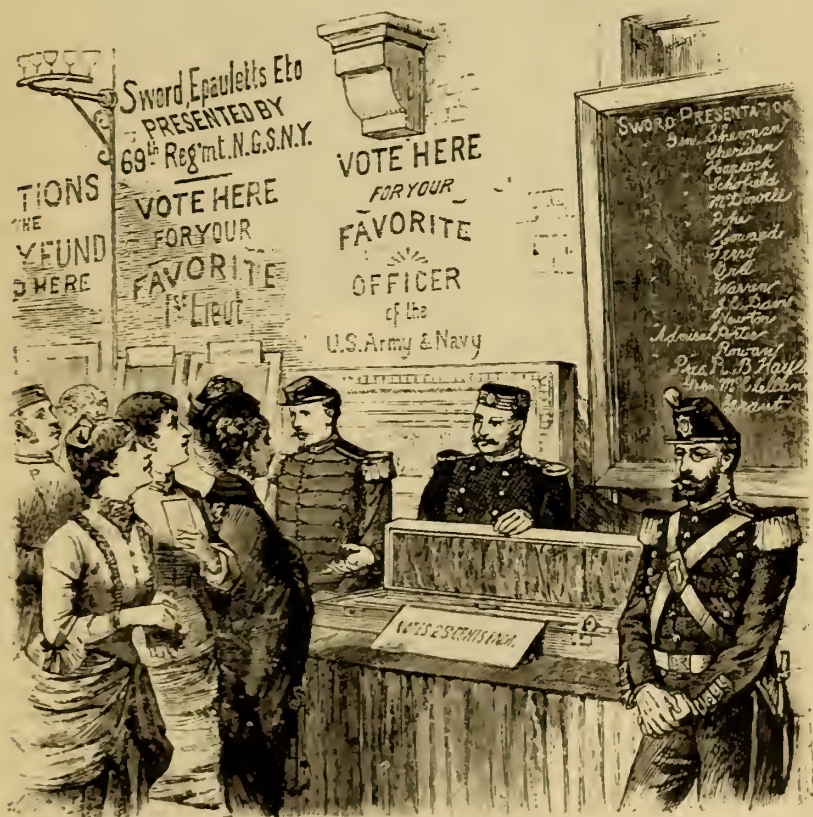 TIONS
THE
Y FUND
D HERE
Sword, Epauletts Etc
PRESENTED BY
69th Reg'mt. N.G.S.N.Y.
VOTE HERE
FOR YOUR
FAVORITE
1st Lieut
VOTE HERE
FOR YOUR
FAVORITE
OFFICER
of the
U.S. Army & Navy
SWORD PRESENTATION
Gen. Sherman
Sheridan
Hancock
Schofield
McDowell
Pope
Howard
Terry
Ord
Warren
Newton
Admiral Porter
Rowan
Pres. R. B. Hayes
Grant
VOTES 25 CENTS EACH.